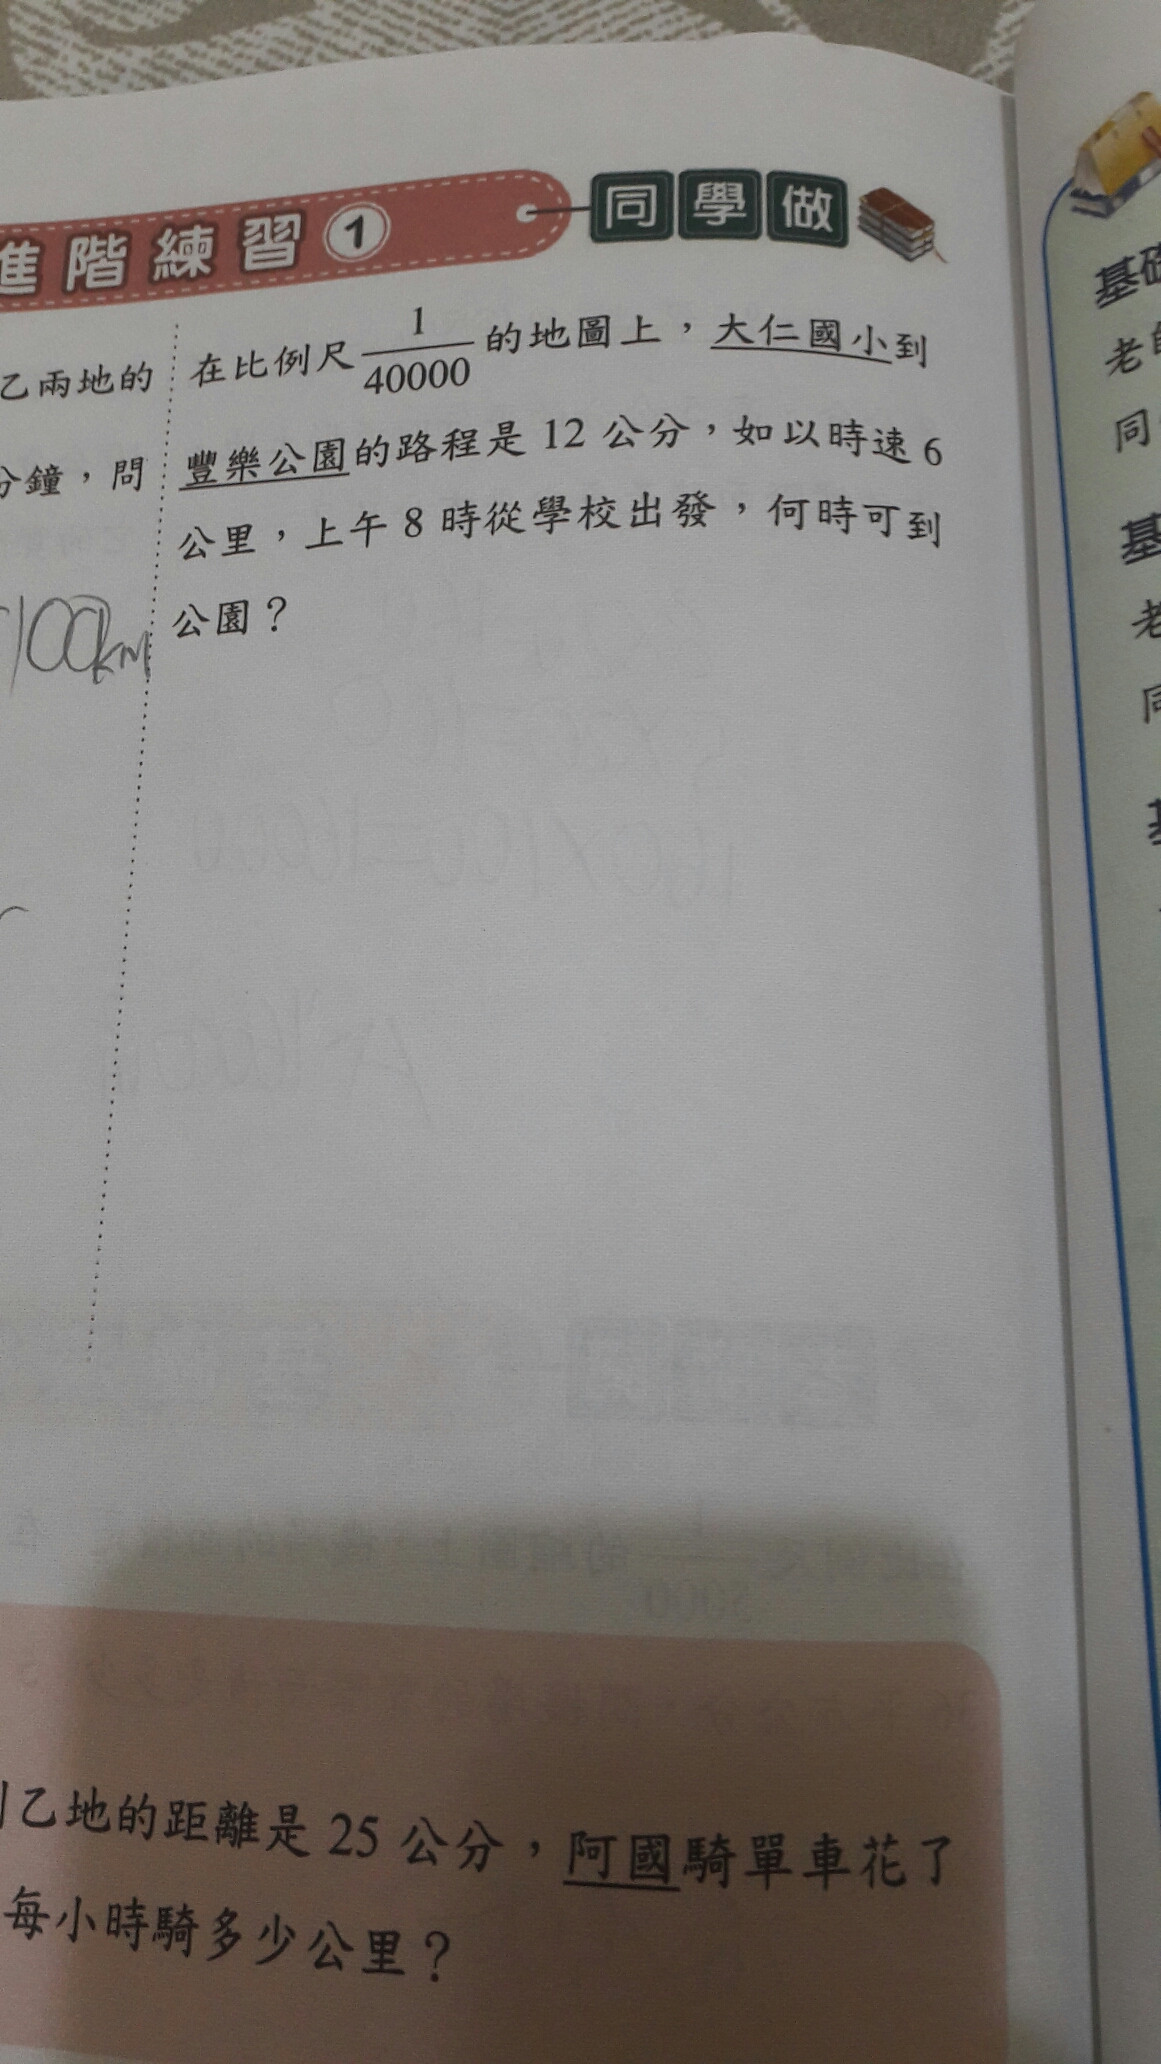 進階練習 1 同學做
乙兩地的
分鐘，問
100km
在比例尺 1/40000 的地圖上，大仁國小到
豐樂公園的路程是 12 公分，如以時速 6
公里，上午 8 時從學校出發，何時可到
公園？
乙地的距離是 25 公分，阿國騎單車花了
每小時騎多少公里？
基礎
老
同
基
老
同